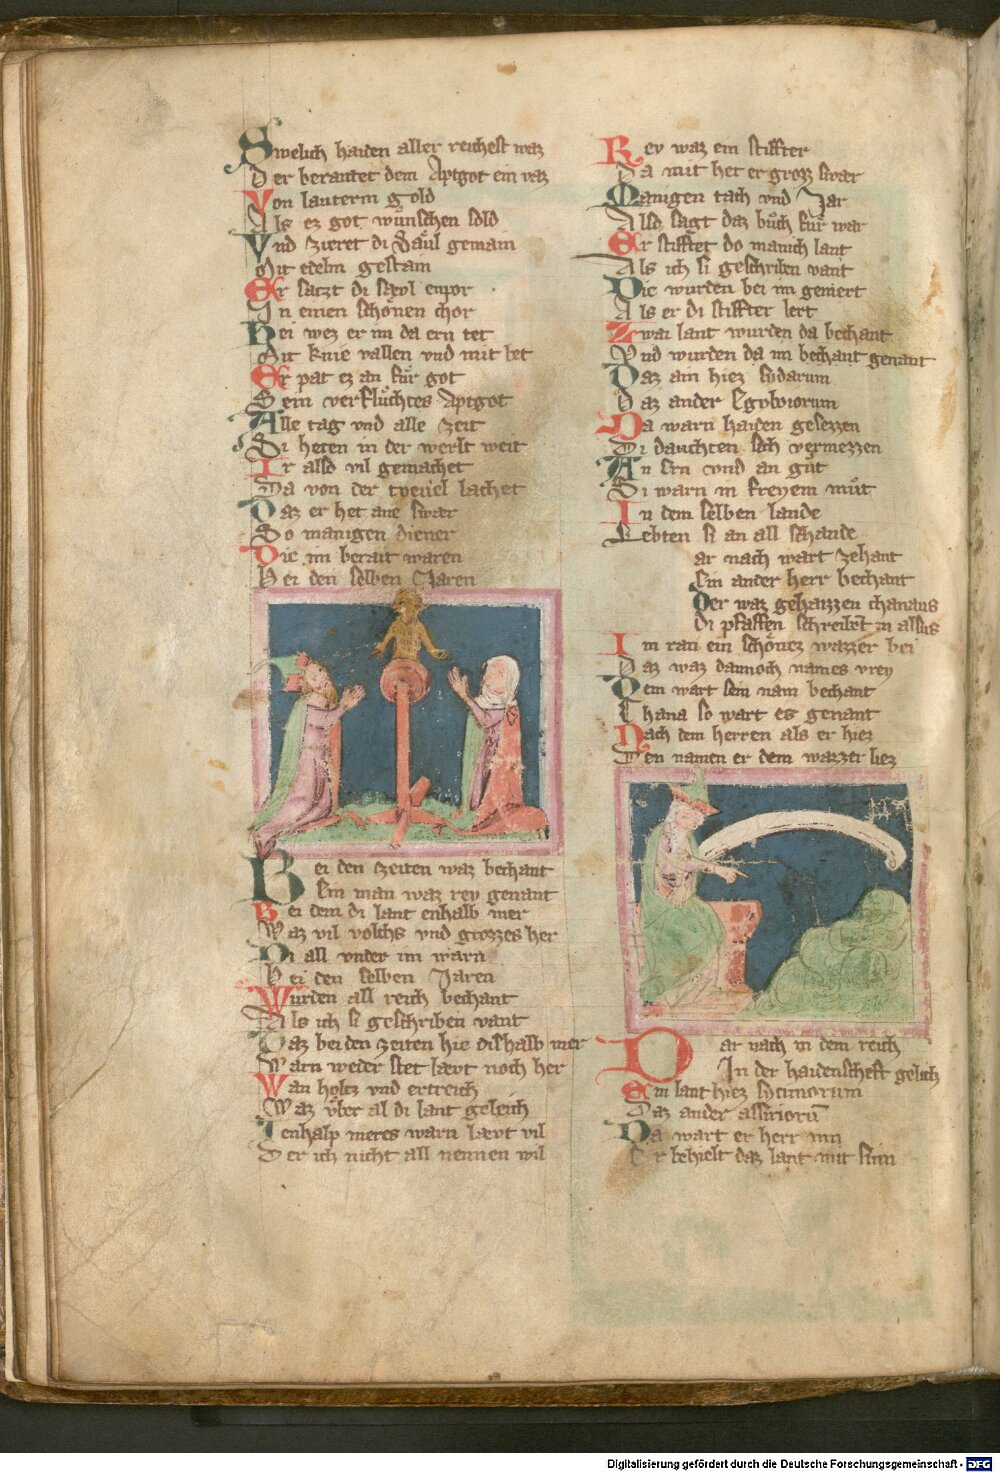 Swelich haiden aller reichest waz
Der berautet dem Aptgot ein vaz
Von lauterm gold
Als ez got wünschen sold
Vnd zieret di Saͤul gemain
Mit edelm gestain
Er satzt di saͤvl enpor
In einen schoͤnen chor
Bei wez er im da ern tet
Mit knie vallen vnd mit bet
Er pat ez an für got
Sein verflüchtes Aptgot
Alle tag vnd alle zeit
Di heten in der werlt weit
Ir also vil gemachet
Da von der tyeuel lachet
Daz er het ane swaer
So manigen diener
Die im berait waren
Bei den selben Jaren
Bei den zeiten waz bechant
Ein man waz rey genant
Bei dem di lant enhalb mer
Waz vil volchs vnd grozzes her
Di all vnder im warn
Bei den selben Jaren
Wurden all reich bechant
Als ich si geschriben vant
Daz bei den zeiten hie dishalb mer
Warn weder stet laevt noch her
Wan holtz vnd ertreich
Waz vͤber al di lant geleich
Jenhalp meres warn laevt vil
Der ich nicht all nennen wil
Rey waz ein stiffter
Da mit het er grozz swaer
Manigen tach vnd Jar
Also sagt daz buͦch für war
Er stifftet do manich lant
Als ich si geschriben vant
Die wurden bei im gemert
Als er di stiffter lert
Zwai lant wurden da bechant
Vnd wurden da im bechant genant
Daz ain hiez sydarum
Daz ander
Da warn haiden gesezzen
Di dauchten sich vermezzen
An ern vnd an guͦt
Di warn in freyem muͦt
In dem selben lande
Lebten si an all schande
ar nach wart zehant
Ein ander herr bechant
Der waz gehaizzen chanaus
Di pfaffen schreibent in alsus
Im ran ein schoͤnez wazzer bei
Daz waz dannoch names vrey
Dem wart sein nam bechant
Chana so wart es genant
Nach dem herren als er hiez
Den namen er dem wazzer liez
Dar nach in dem reich
In der haidenscheft gelich
Ein lant hiez
Daz ander assirioru̅
Da wart er herr inn
Er behielt daz lant mit sinn
Digitalisierung gefördert durch die Deutsche Forschungsgemeinschaft - DFG